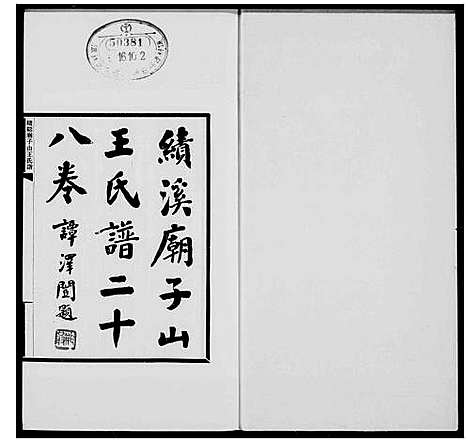 50381
16.10.2
績溪廟子山
王氏譜二十
八卷 譚澤闓題
績谿廟子山王氏譜